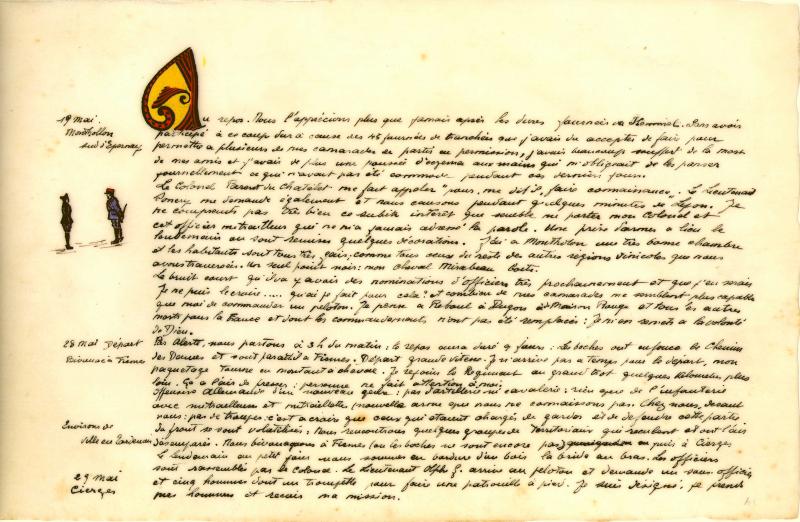 19 Mai.
Monthollon
sud d'Epernay
Au repos. Nous l'apprécions plus que jamais après les dures journées de . Sans avoir
participé à ce coup dur à cause des 45 journées de tranchées que j'avais du accepter de faire pour
permettre a plusieurs de mes camarades de partir en permissions, j'avais beaucoup souffert de la mort
de mes amis et j'avais de plus une poussée d'eczema aux mains qui m'obligeait de les panser
journellement ce qui n'avait pas été commode pendant ces derniers jours.
Le Colonel Parent du Chatelet me fait appeler "pour, me dit il, faire connaissance". Le Lieutenant
me demande également et nous causons pendant quelques minutes de Lyon. Je
ne comprends pas très bien ce subite intérêt que semble me porter mon Colonel et
cet officier mitrailleur qui ne m'a jamais adressé la parole. Une prise d'armes a lieu le
lendemain ou sont remises quelques décorations. J'ai a Montholon une très bonne chambre
et les habitants sont tous très gais, comme tous ceux du reste des autres régions vinicoles que nous
avons traversées. Un seul point noir: mon cheval Mirabeau boite.
Le bruit court qu'il va y avoir des nominations d'officiers très prochainement et que j'en serais
Je ne puis le croire.... qu'ai je fait pour cela? et combien de mes camarades me semblent plus capables
que moi de commander un peloton. Je pense a Reboul à Dugons à Maison Rouge et tous les autres
morts pour la France et dont les commandements n'ont pas été remplacés: Je m'en remets a la volonté
de Dieu.
28 Mai Départ
Bivouac à Fismes
Pas Alerte, nous partons à 3 h du matin: le repos aura duré 9 jours: Les boches ont enfoncé le Chemin
des Dames et sont parait-il a Fismes. Départ grande vitesse. J'y arrive pas a temps pour le départ, mon
paquetage tourne en montant a cheval. Je rejoins le Régiment au grand trot quelques kilometres plus
loin. Ça a l'air de presser: personne ne fait attention à moi.
Offensive Allemande d'un nouveau genre: pas d'artillerie ni cavalerie: rien que de l'infanterie
avec mitrailleuses et mitraillettes (nouvelle arme que nous ne connaissons pas. Chez nous, devant
nous: pas de troupes. c'est a croire que ceux qui étaient chargés de garder et de defendre cette partie
du front se sont volatilisés: Nous rencontrons quelques groupes de Territoriaux qui reculent et ont l'air
Environs de
Ville en Tardenois
désemparés. Nous bivouaquons à Fismes (ou les boches ne sont encore pas) puis à Cierges
Le lendemain au petit jour nous sommes en bordure d'un bois la bride au bras. Les officiers
sont rassemblés par le Colonel. Le Lieutenant arrive au peloton et demande un sous officier
29 Mai
Cierges
et cinq hommes dont un trompette pour faire une patrouille à pied. Je suis désigné, je prends
mes hommes et recois ma mission.